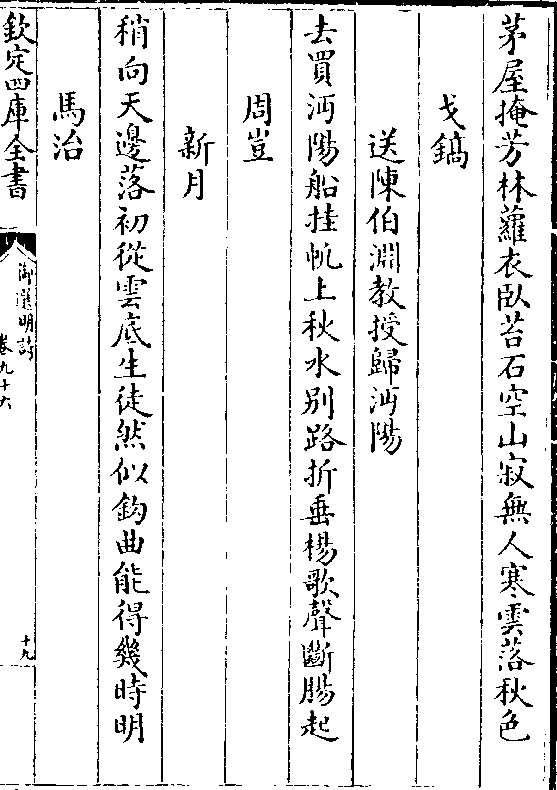 茅屋掩芳林蘿衣臥苔石空山寂無人寒雲落秋色
戈鎬
送陳伯淵教授歸沔陽
去買沔陽船挂帆上秋水別路折垂楊歌聲斷腸起
周豈
新月
稍向天邊落初從雲底生徒然似鉤曲能得幾時明
馬治
欽定四庫全書
御選明詩
卷九十六
十九